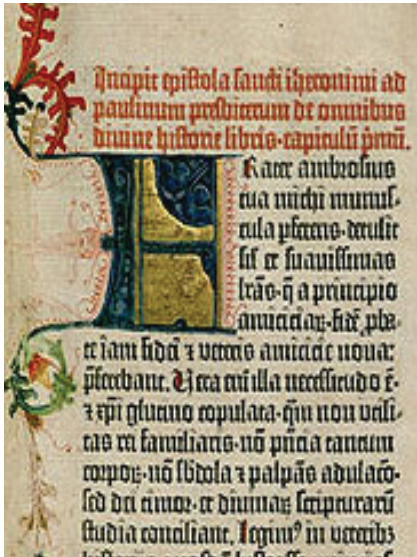 Incipit epistola sancti iheronimi ad
paulinum presbiterum de omnibus
divine historie libris·capitulū pͥmū.
FRater ambrosius
tua michi munus-
cula pferens·detulit
sil̄ et suavissimas
lrās·q̄ a principio
amiciciaꝝ·fidē ꝓba-
te iam fidei ⁊ veteris amicicie nova:
pferebant. Vera em̄ illa necessitudo ē·
⁊ xp̄i glutino copulata·qm̄ non utili-
tas rei familiaris·nō pn̄cia tantum
corpoꝝ·nō sbdola ⁊ palpās adulaco-
sed dei timor·et divinaꝝ scripturarū
studia conciliant. Legimꝰ in veterib3